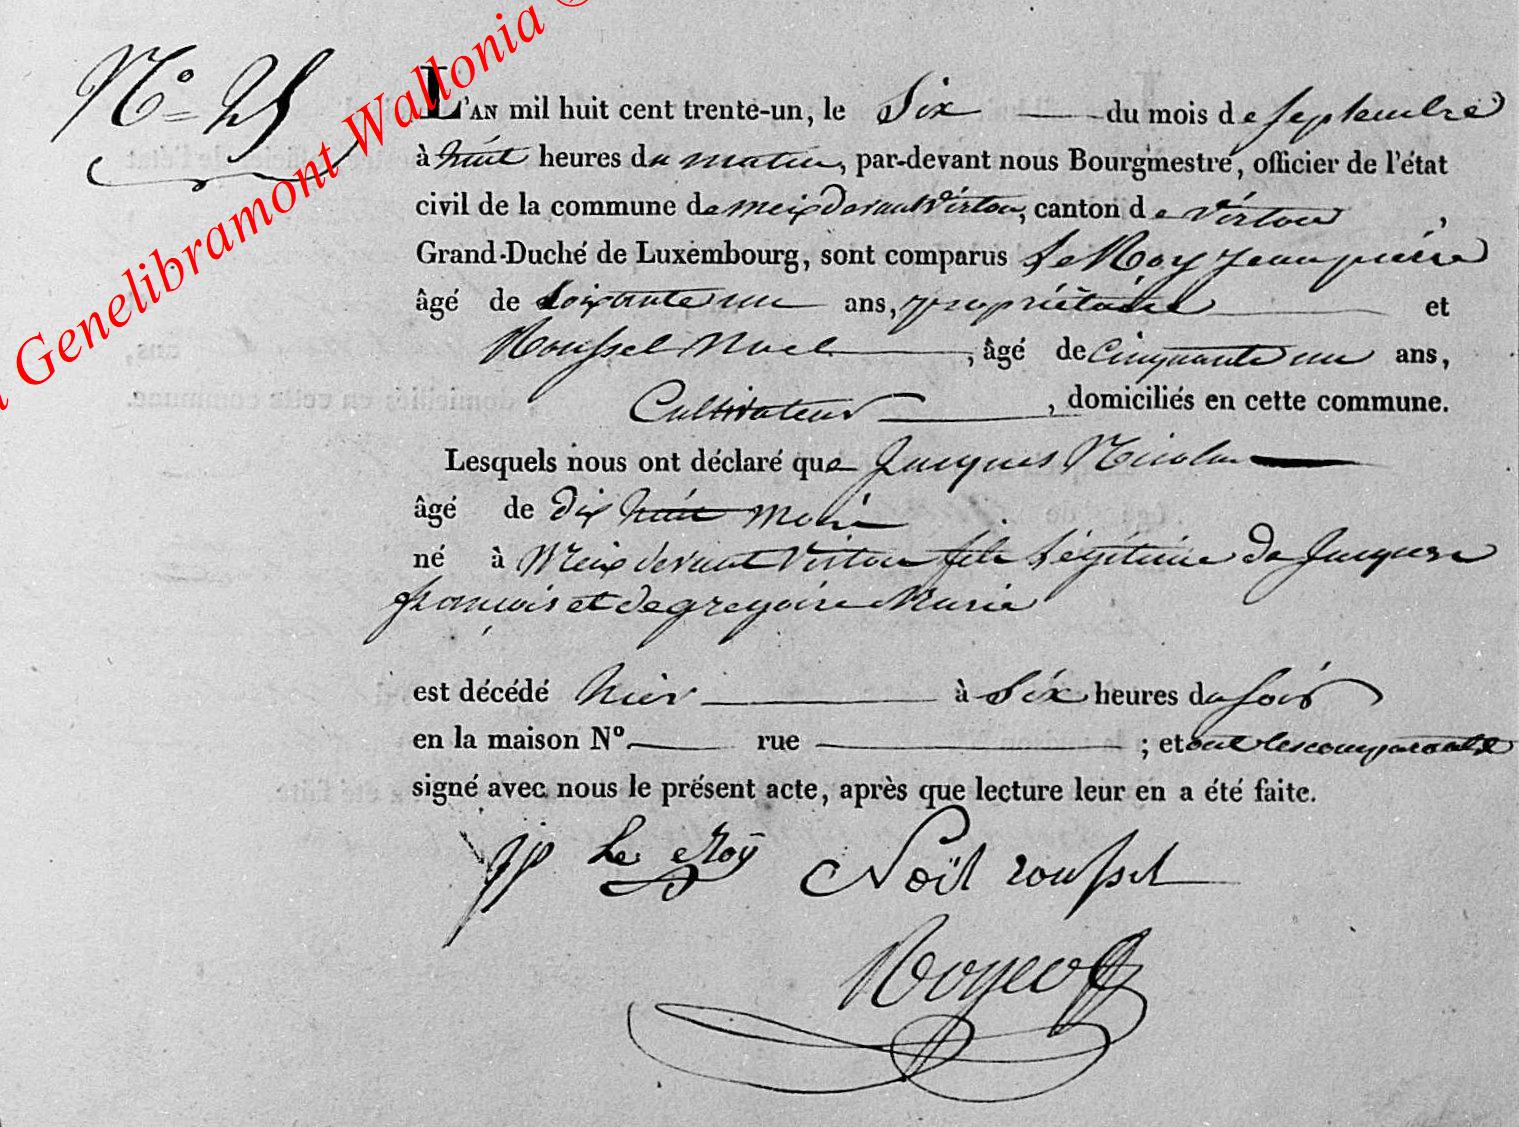 Genelibramont Wallonia ©
N° 25
L'AN mil huit cent trente-un, le Six du mois de septembre
à huit heures du matin, par-devant nous Bourgmestre, officier de l'état
civil de la commune de meix devant Virton, canton de Virton,
Grand-Duché de Luxembourg, sont comparus Le Roy Jean pierre
âgé de soixante un ans, propriétaire et
Roussel Noel, âgé de Cinquante un ans,
Cultivateur, domiciliés en cette commune.
Lesquels nous ont déclaré que Jacques Nicolas
âgé de dix huit mois
né à Meix devant Virton fils Légitime de Jacques
françois et de gregoire Marie
est décédé hier à Six heures du soir
en la maison N° rue ; et ont les comparants
signé avec nous le présent acte, après que lecture leur en a été faite.
JP Le Roÿ Noël roussel